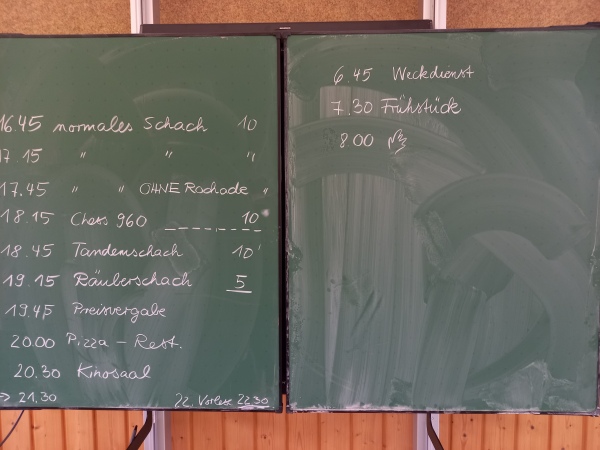 16.45 normales Schach 10
17 15 " " "
17.45 " " OHNE Rochade "
18.15 Chess 960 10
18.45 Tandemschach 10'
19.15 Räuberschach 5
19.45 Preisvergabe
20.00 Pizza - Rest.
20.30 Kinosaal
-> 21.30 22. Vorlese 22.30
6.45 Weckdienst
7.30 Frühstück
8.00